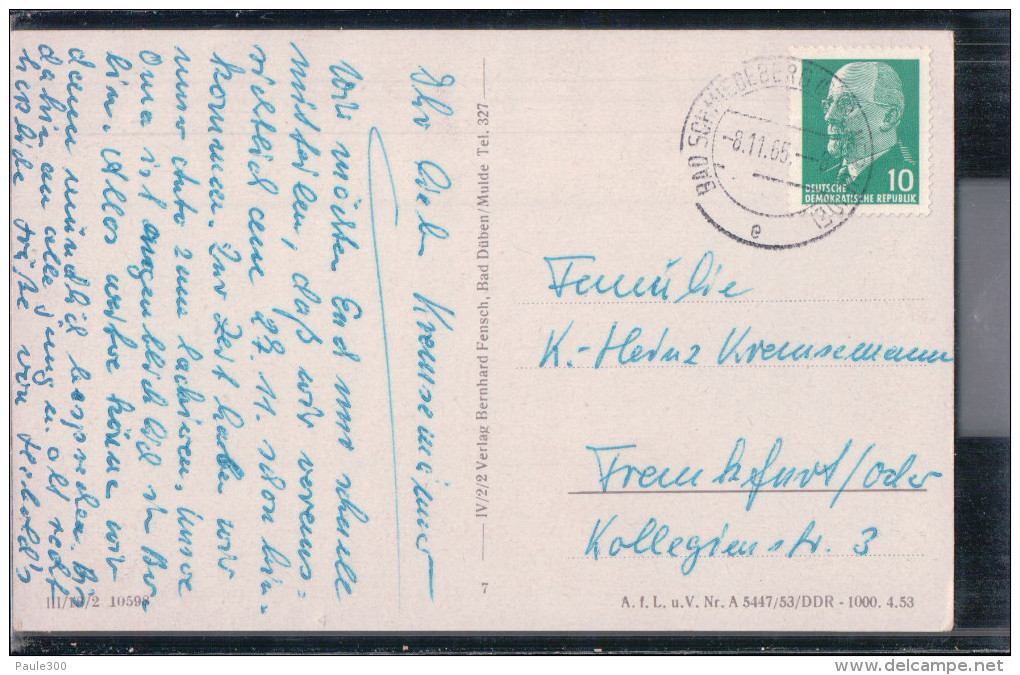 Ihr lieb. Kremsemänner
Wir möchten Euch nur schnell
mitteilen, daß wir voraus=
sichtlich am 27. 11. schon hin-
kommen. Zur Zeit haben wir
unser Auto zum lackieren, unsere
Oma ist augenblicklich in Ber
lin. Alles weitere können wir
dann mündlich besprechen. Bis
dahin an alle jung u. alt recht
herzliche Grüße von
IV/2/2 Verlag Bernhard Fensch, Bad Düben/Mulde Tel. 327
7
III/18/2 10598
BAD SCHMIEDEBERG
-8.11.65.
e
DEUTSCHE
DEMOKRATISCHE REPUBLIK
10
Familie
K.-Heinz Kremsemann
Frankfurt/oder
Kollegienstr. 3
A. f. L. u. V. Nr. A 5447/53/DDR - 1000. 4.53
Paule300
www.delcampe.net